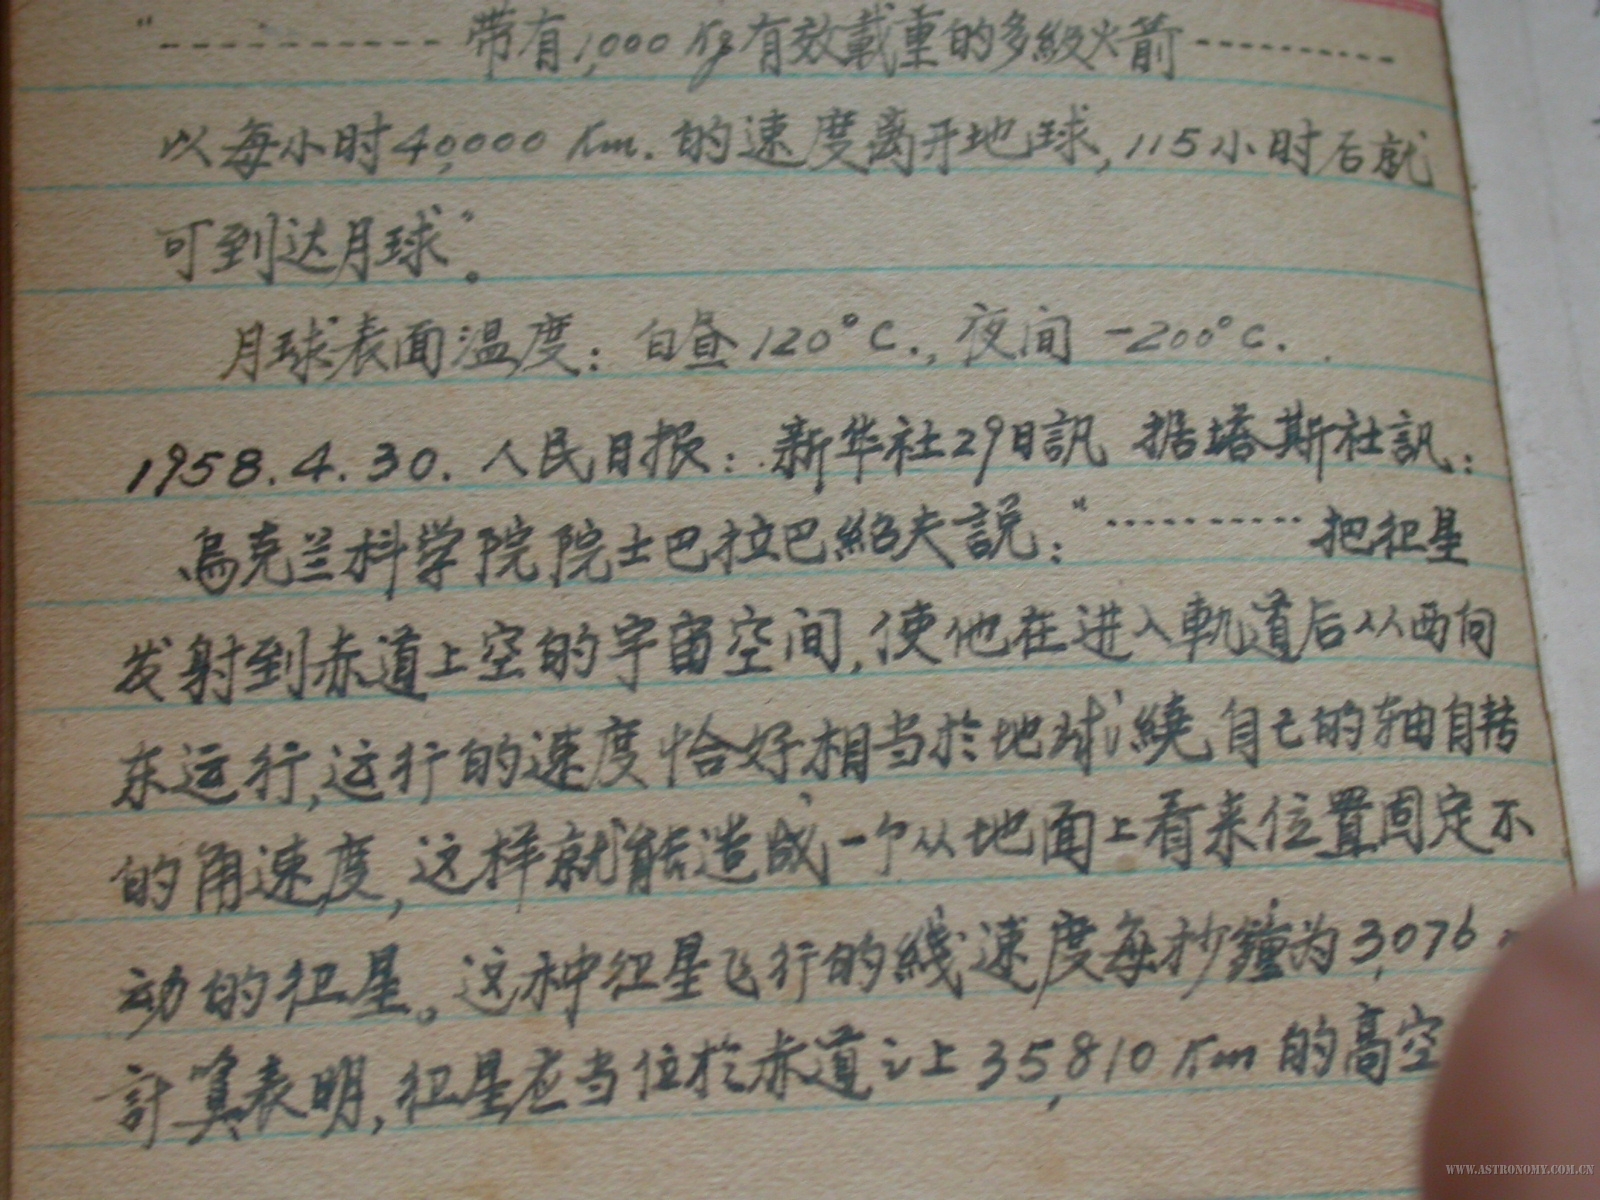 “----------- 带有1,000 Kg有效載重的多級火箭--------
以每小时40,000 Km. 的速度离开地球,115小时后就
可到达月球”。
月球表面温度: 白昼120°C., 夜间 -200°C.
1958.4.30. 人民日报: 新华社29日訊 据塔斯社訊:
烏克兰科学院院士巴拉巴紹夫説:“---------- 把卫星
发射到赤道上空的宇宙空间,使他在进入軌道后从西向
东运行,运行的速度恰好相当於地球繞自己的轴自转
的角速度,这样就能造成一个从地面上看来位置固定不
动的卫星。这种卫星飞行的綫速度每抄鐘为3,076
計算表明,卫星应当位於赤道之上35,810 Km的高空
WWW.ASTRONOMY.COM.CN